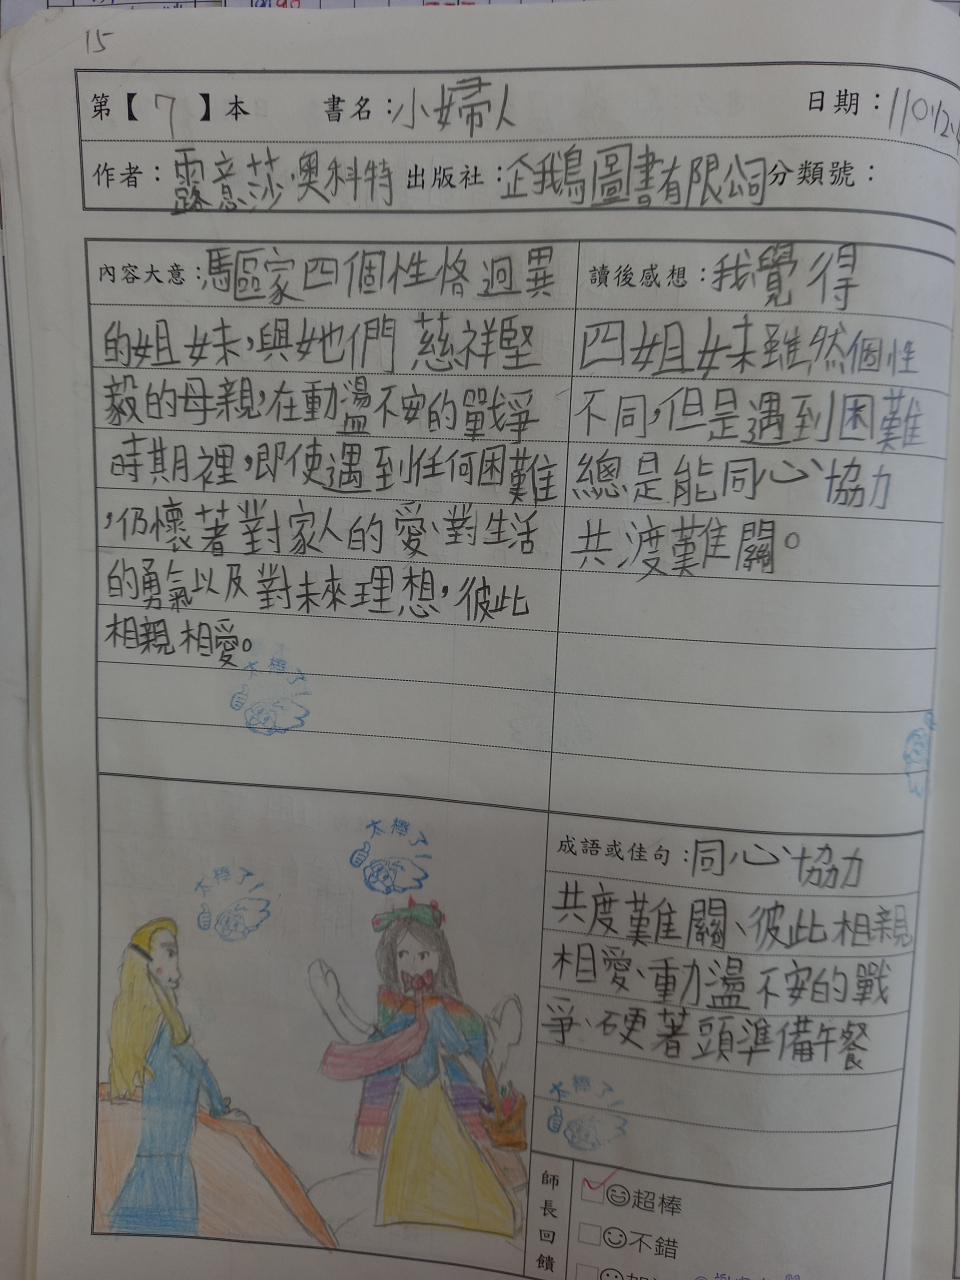 15
第【7】本 書名:小婦人 日期:110.12.
作者:露意莎.奧科特 出版社:企鵝圖書有限公司 分類號:
內容大意:馬區家四個性格迥異
的姐妹,與她們慈祥堅
毅的母親,在動盪不安的戰爭
時期裡,即使遇到任何困難
,仍懷著對家人的愛、對生活
的勇氣以及對未來理想,彼此
相親相愛。
太棒了
讀後感想:我覺得
四姐妹雖然個性
不同,但是遇到困難
總是能同心協力
共渡難關。
太棒了!
太棒了!
成語或佳句:同心協力
共度難關、彼此相親
相愛、動盪不安的戰
爭、硬著頭準備午餐
太棒了!
師長回饋
超棒
不錯